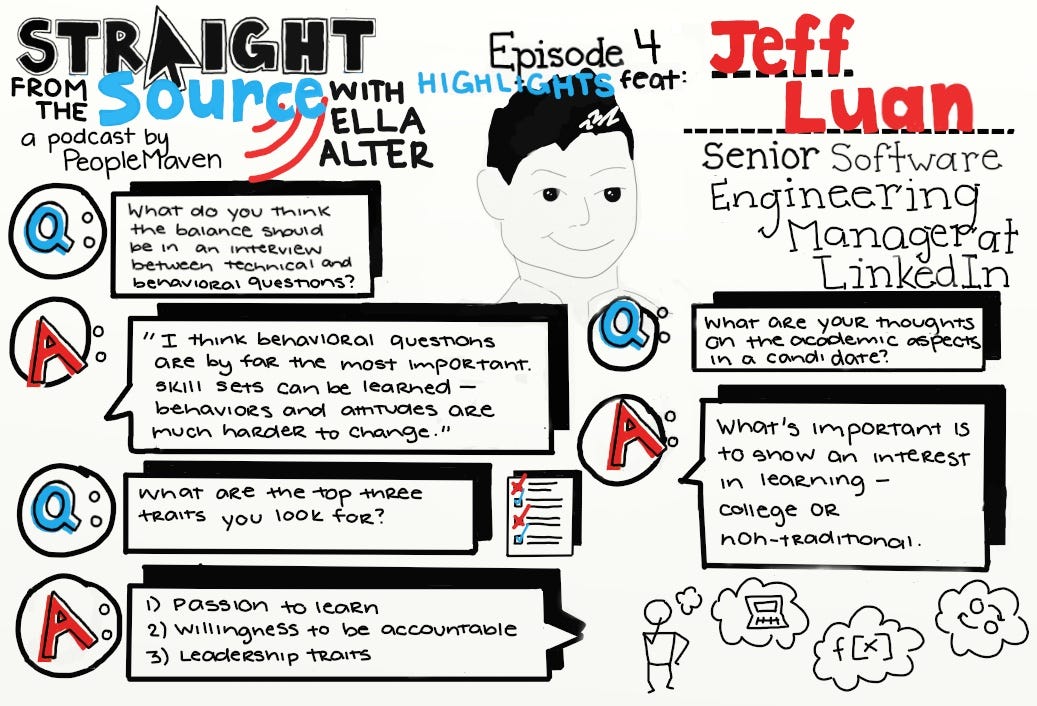 STRAIGHT
FROM THE Source WITH ELLA ALTER
a podcast by
PeopleMaven
Episode 4
HIGHLIGHTS feat:
Jeff
Luan
Senior Software
Engineering
Manager at
LinkedIn
Q:
What do you think
the balance should
be in an interview
between technical and
behavioral questions?
A:
"I think behavioral questions
are by far the most important.
Skill sets can be learned —
behaviors and attitudes are
much harder to change."
Q:
What are the top three
traits you look for?
A:
1) Passion to learn
2) Willingness to be accountable
3) Leadership traits
Q:
What are your thoughts
on the academic aspects
in a candidate?
A:
What's important is
to show an interest
in learning —
college OR
non-traditional.
f[x]